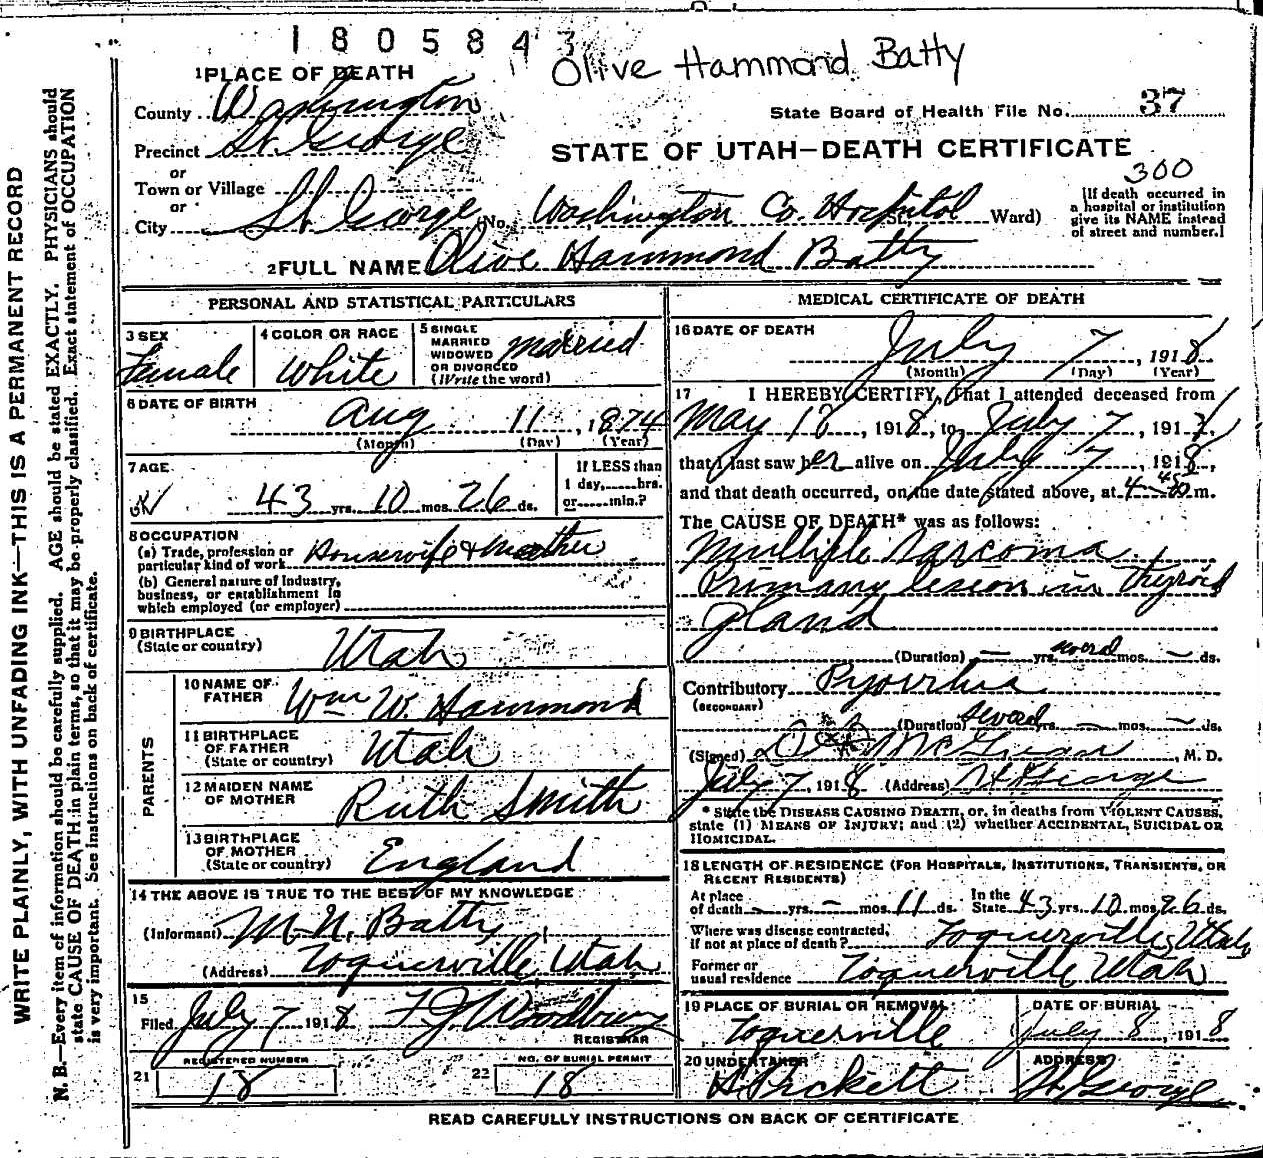 1805843
Olive Hammond Batty
1 PLACE OF DEATH
County Washington
State Board of Health File No. 37
Precinct St. George
STATE OF UTAH—DEATH CERTIFICATE
or
Town or Village
300
or
City St. George (No. Washington Co. Hospital St. Ward)
[If death occurred in
a hospital or institution
give its NAME instead
of street and number.]
2 FULL NAME Olive Hammond Batty
PERSONAL AND STATISTICAL PARTICULARS
3 SEX
Female
4 COLOR OR RACE
White
5 SINGLE
MARRIED
WIDOWED
OR DIVORCED
(Write the word)
married
6 DATE OF BIRTH
Aug 11, 1874
(Month) (Day) (Year)
7 AGE
43 yrs. 10 mos. 26 ds.
If LESS than
1 day, hrs.
or min.?
8 OCCUPATION
(a) Trade, profession or
particular kind of work Housewife & Mother
(b) General nature of Industry,
business, or establishment in
which employed (or employer)
9 BIRTHPLACE
(State or country) Utah
PARENTS
10 NAME OF
FATHER Wm W. Hammond
11 BIRTHPLACE
OF FATHER
(State or country) Utah
12 MAIDEN NAME
OF MOTHER Ruth Smith
13 BIRTHPLACE
OF MOTHER
(State or country) England
14 THE ABOVE IS TRUE TO THE BEST OF MY KNOWLEDGE
(Informant) M. N. Batty
(Address) Toquerville, Utah
15
Filed July 7 1918 F J Woodbury
REGISTRAR
REGISTERED NUMBER
21 18
NO. OF BURIAL PERMIT
22 18
MEDICAL CERTIFICATE OF DEATH
16 DATE OF DEATH
July 7, 1918
(Month) (Day) (Year)
17 I HEREBY CERTIFY, That I attended deceased from
May 18, 1918, to July 7, 191
that I last saw her alive on July 7, 1918,
and that death occurred, on the date stated above, at m.
The CAUSE OF DEATH* was as follows:
Multiple Sarcoma.
Primary lesion in thyroid
gland
(Duration) — yrs. several mos. — ds.
Contributory Pyorrhea
(SECONDARY)
(Duration) several yrs. — mos. — ds.
(Signed) McGregor, M. D.
July 7, 1918 (Address) St George
* State the DISEASE CAUSING DEATH, or, in deaths from VIOLENT CAUSES,
state (1) MEANS OF INJURY; and (2) whether ACCIDENTAL, SUICIDAL OR
HOMICIDAL.
18 LENGTH OF RESIDENCE (FOR HOSPITALS, INSTITUTIONS, TRANSIENTS, OR
RECENT RESIDENTS)
At place
of death — yrs. — mos. 11 ds. In the
State 43 yrs. 10 mos. 26 ds.
Where was disease contracted,
if not at place of death? Toquerville, Utah
Former or
usual residence Toquerville Utah
19 PLACE OF BURIAL OR REMOVAL
Toquerville
DATE OF BURIAL
July 8, 1918
20 UNDERTAKER
Pickett
ADDRESS
St George
READ CAREFULLY INSTRUCTIONS ON BACK OF CERTIFICATE
WRITE PLAINLY, WITH UNFADING INK—THIS IS A PERMANENT RECORD
N. B.—Every item of information should be carefully supplied. AGE should be stated EXACTLY. PHYSICIANS should
state CAUSE OF DEATH in plain terms, so that it may be properly classified. Exact statement of OCCUPATION
is very important. See instructions on back of certificate.